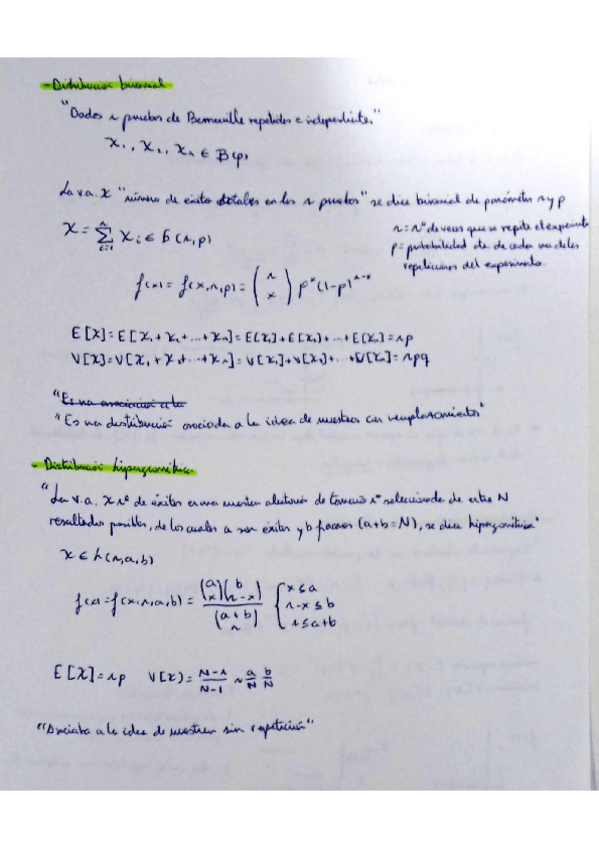 - Distribución binomial
"Dados n pruebas de Bernouille repetidos e independientes."
X₁, X₂, Xₙ ∈ B(p)
La v.a. X "número de éxitos totales en los n pruebas" se dice binomial de parámetros n y p
X = Σᵢ₌₁ⁿ Xᵢ ∈ b(n,p)
n = nº de veces que se repite el experimento
p = probabilidad de de cada una de las
repeticiones del experimento.
f(x) = f(x,n,p) = (n x) pˣ (1-p)ⁿ⁻ˣ
E[X] = E[X₁ + X₂ + ... + Xₙ] = E[X₁] + E[X₂] + ... + E[Xₙ] = np
V[X] = V[X₁ + X₂ + ... + Xₙ] = V[X₁] + V[X₂] + ... + V[Xₙ] = npq
"Es una asociación a la
"Es una distribución asociada a la idea de muestra con remplazamiento"
- Distribución hipergeométrica
"La v.a. X nº de éxitos en una muestra aleatoria de tamaño n seleccionada de entre N
resultados posibles, de los cuales a son éxitos y b fracasos (a+b=N), se dice hipergeométrica"
X ∈ h(n,a,b)
f(x) = f(x,n,a,b) = (a x)(b n-x) / (a+b n) { x ≤ a
n-x ≤ b
n ≤ a+b
E[X] = np V(X) = N-n/N-1 n a/N b/N
"Asociada a la idea de muestreo sin repetición"